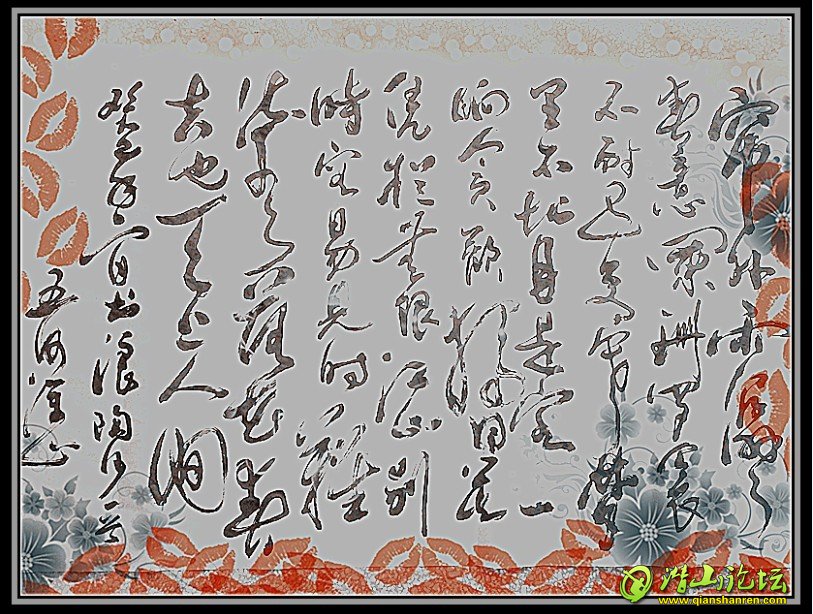 帘外雨潺潺
春意阑珊罗衾
不耐五更寒梦
里不知身是客一
晌贪欢独自莫
凭栏无限江山别
时容易见时难
流水落花春
去也天上人间
癸巳年书浪陶沙一首
五河
潜山论坛
www.qianshanren.com